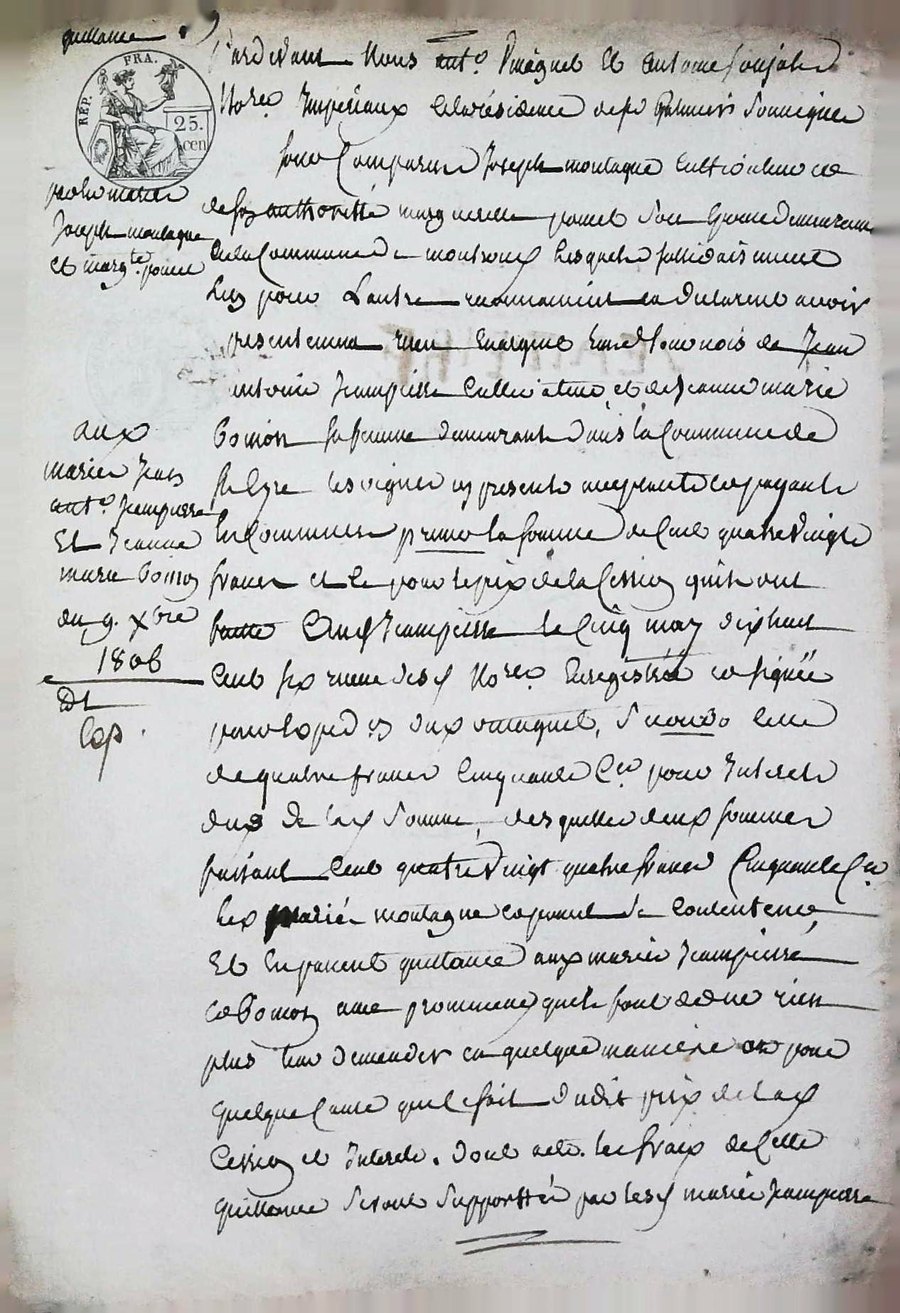 quittance
REP. FRA.
25.
cen
Pardevant Nous ant.º Vinagnel et antoine
Nores Imperiaux a la résidence de Soussignés
Sont Comparus Joseph montagne Cultivateur et
de luy authorisée marguerite pouret Son Epouse demeurant
en la Commune de lesquels sollidairement
l'un pour L'autre reconnaissent et declarent avoir
presentement reçu En argent de Jean
antoine Jeampierre Cultivateur et de Jeanne marie
bomon sa femme demeurant dans la Commune de
St Cyre les vignes cy presents acceptants et payants
En Commun primo la somme de Cent quatre vingts
francs et ce pour le prix de la Cession qu'ils ont
faitte aux Jeampierre le Cinq may dix huit
Cent six reçue desd Nores Enregistrée et signée
secundo Celle
de quatre francs Cinquante Ces pour Interets
dus de lad Somme, desquelles deux sommes
faisant Cent quatre vingt quatre francs Cinquante Ces
les mariés montagne et pouret Se Contentent
Et En passent quittance aux mariés Jeampierre
et bomon avec promesse qu'ils font de ne rien
plus leur demander en quelque manière ou pour
quelque Cause que Ce soit dudit prix de lad
Cession et Interets. Dont acte. les fraix de Cette
quittance Seront Supportés par lesd mariés Jeampierre
par les mariés
Joseph montagne
et margte. pouret
aux
mariés Jean
ant.º Jeampierre
Et Jeanne
marie bomon
du 9. xbre
1806
Et
Cop.